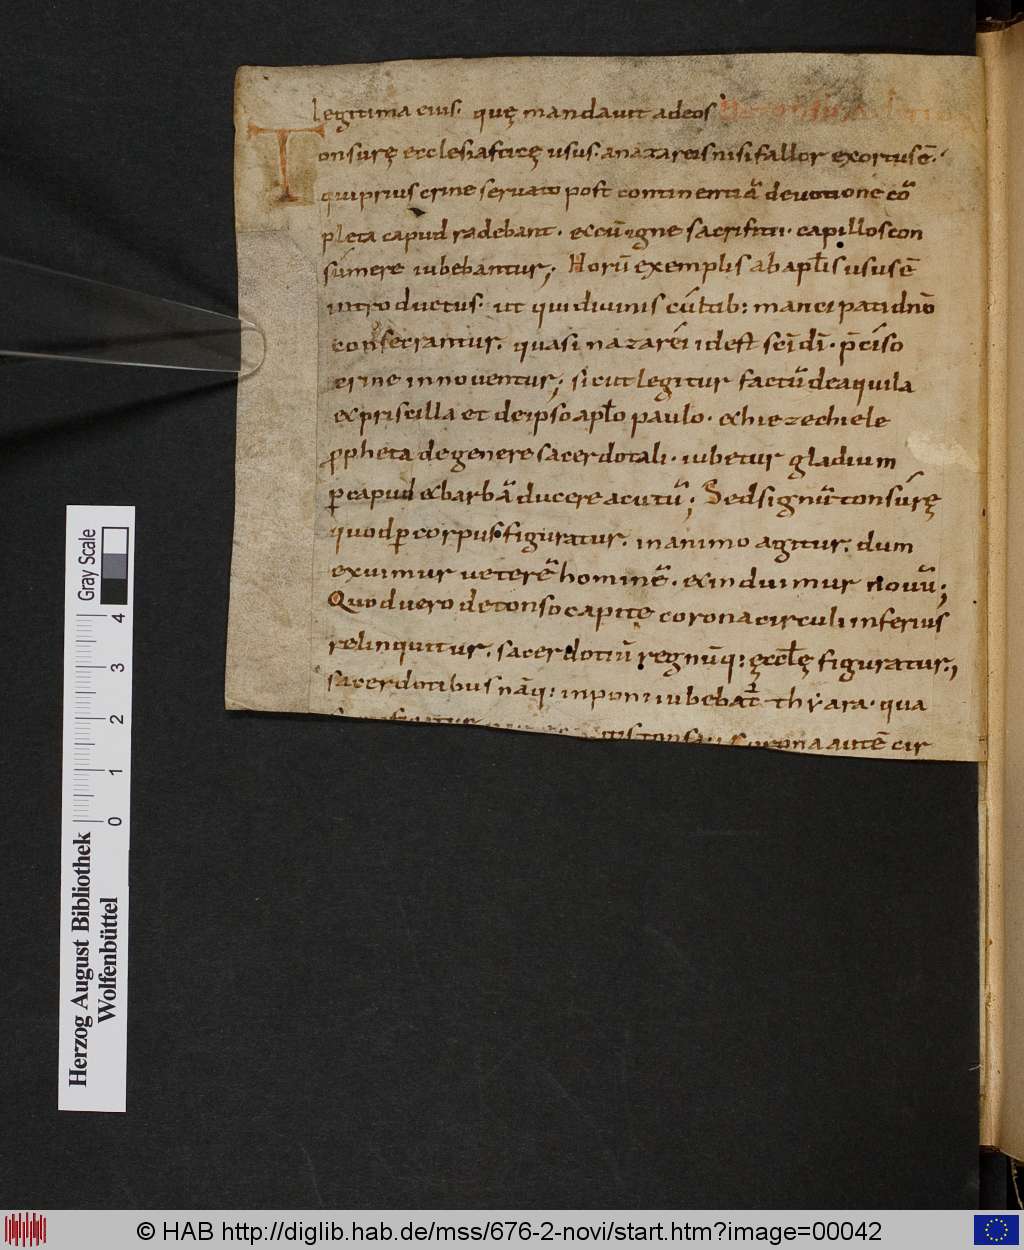 legitima eius. quę mandauit ad eos
Tonsurę ecclesiasticę usus. a nazareis nisi fallor exortus ē.
qui prius crine seruato post continentiā deuotione cō
pleta capud radebant. et cū igne sacrificii. capillos con
sumere iubebantur; Horū exemplis ab apłis usus ē
introductus. ut qui diuinis cultib; mancipati dnō
consecrantur. quasi nazarei id est scī dī. p̄ciso
crine innouentur; sicut legitur factū de aquila
ex priscilla et de ipso apło paulo. et hiezechiele
ppheta de genere sacerdotali. iubetur gladium
p capud et barbā ducere acutū; Sed signū tonsurę
quod p corpus figuratur. in animo agitur. dum
exuimur ueterē hominē. et induimur nouū;
Quod uero detonso capite corona circuli inferius
relinquitur. sacerdotiū regnūq; ęcclę figuratur.
sacerdotibus nāq; inponi iubebat thyara. qua
corona autē cir
Herzog August Bibliothek
Wolfenbüttel
0 1 2 3 4
Gray Scale
© HAB http://diglib.hab.de/mss/676-2-novi/start.htm?image=00042